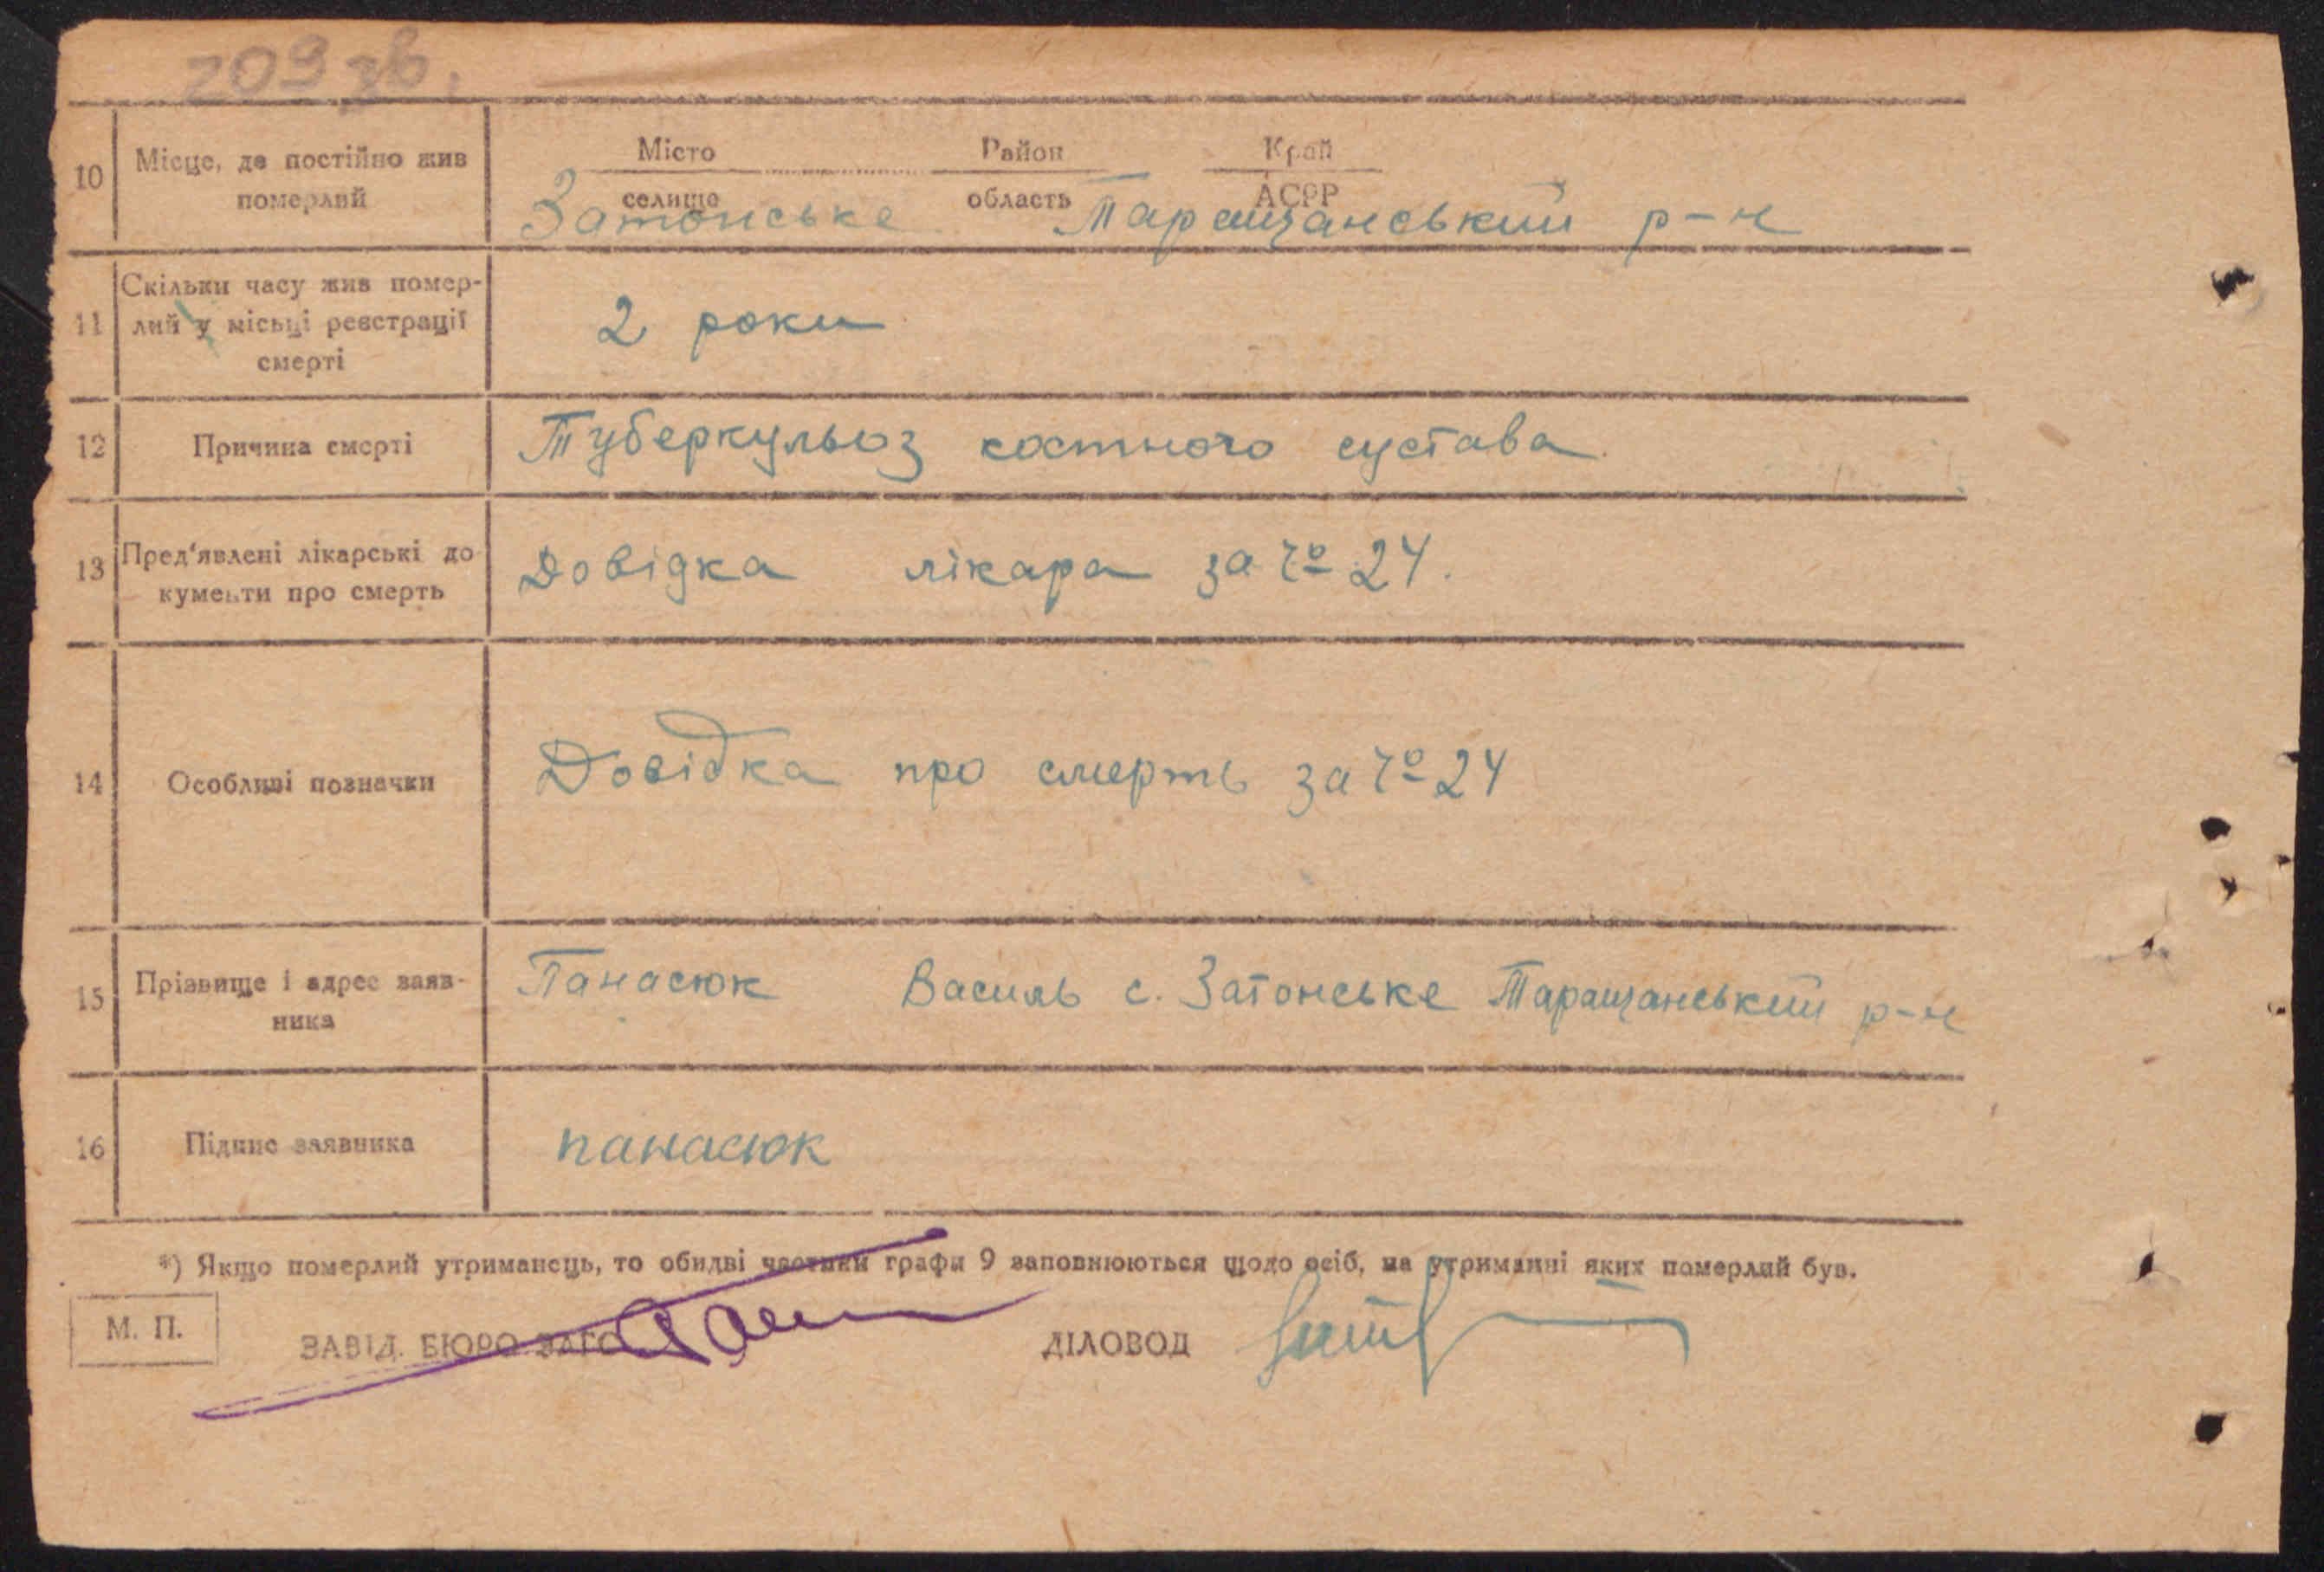 209 зв.
10 Місце, де постійно жив померлий
Місто Район Край
селище область АСРР
Затонське Таращанський р-н
11 Скільки часу жив помер-
лий у місьці реєстрації
смерті
2 роки
12 Причина смерті
Туберкульоз костного сустава.
13 Пред'явлені лікарські до
кументи про смерть
Довідка лікара за № 24.
14 Особливі позначки
Довідка про смерть за № 24
15 Прізвище і адрес заяв-
ника
Панасюк Василь с. Затонське Таращанський р-н
16 Підпис заявника
панасюк
*) Якщо померлий утриманець, то обидві частини графи 9 заповнюються щодо осіб, на утриманні яких померлий був.
М. П.
ЗАВІД. БЮРО ЗАГС ДІЛОВОД